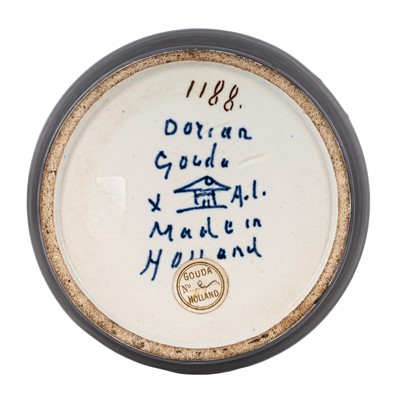 1188.
Dorian
Gouda
X A.L.
Made in
Holland
GOUDA
No
HOLLAND